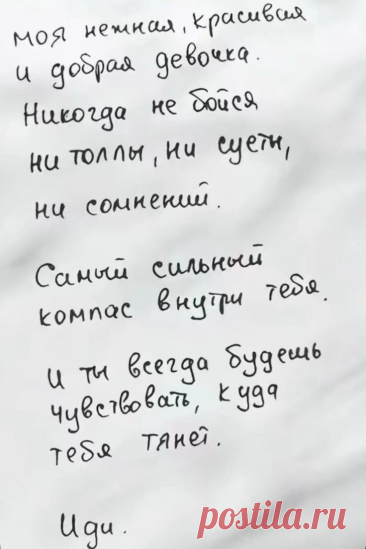 моя нежная, красивая
и добрая девочка.
Никогда не бойся
ни толпы, ни суеты,
ни сомнений.
Самый сильный
компас внутри тебя.
И ты всегда будешь
чувствовать, куда
тебя тянет.
Иди.
postila.ru